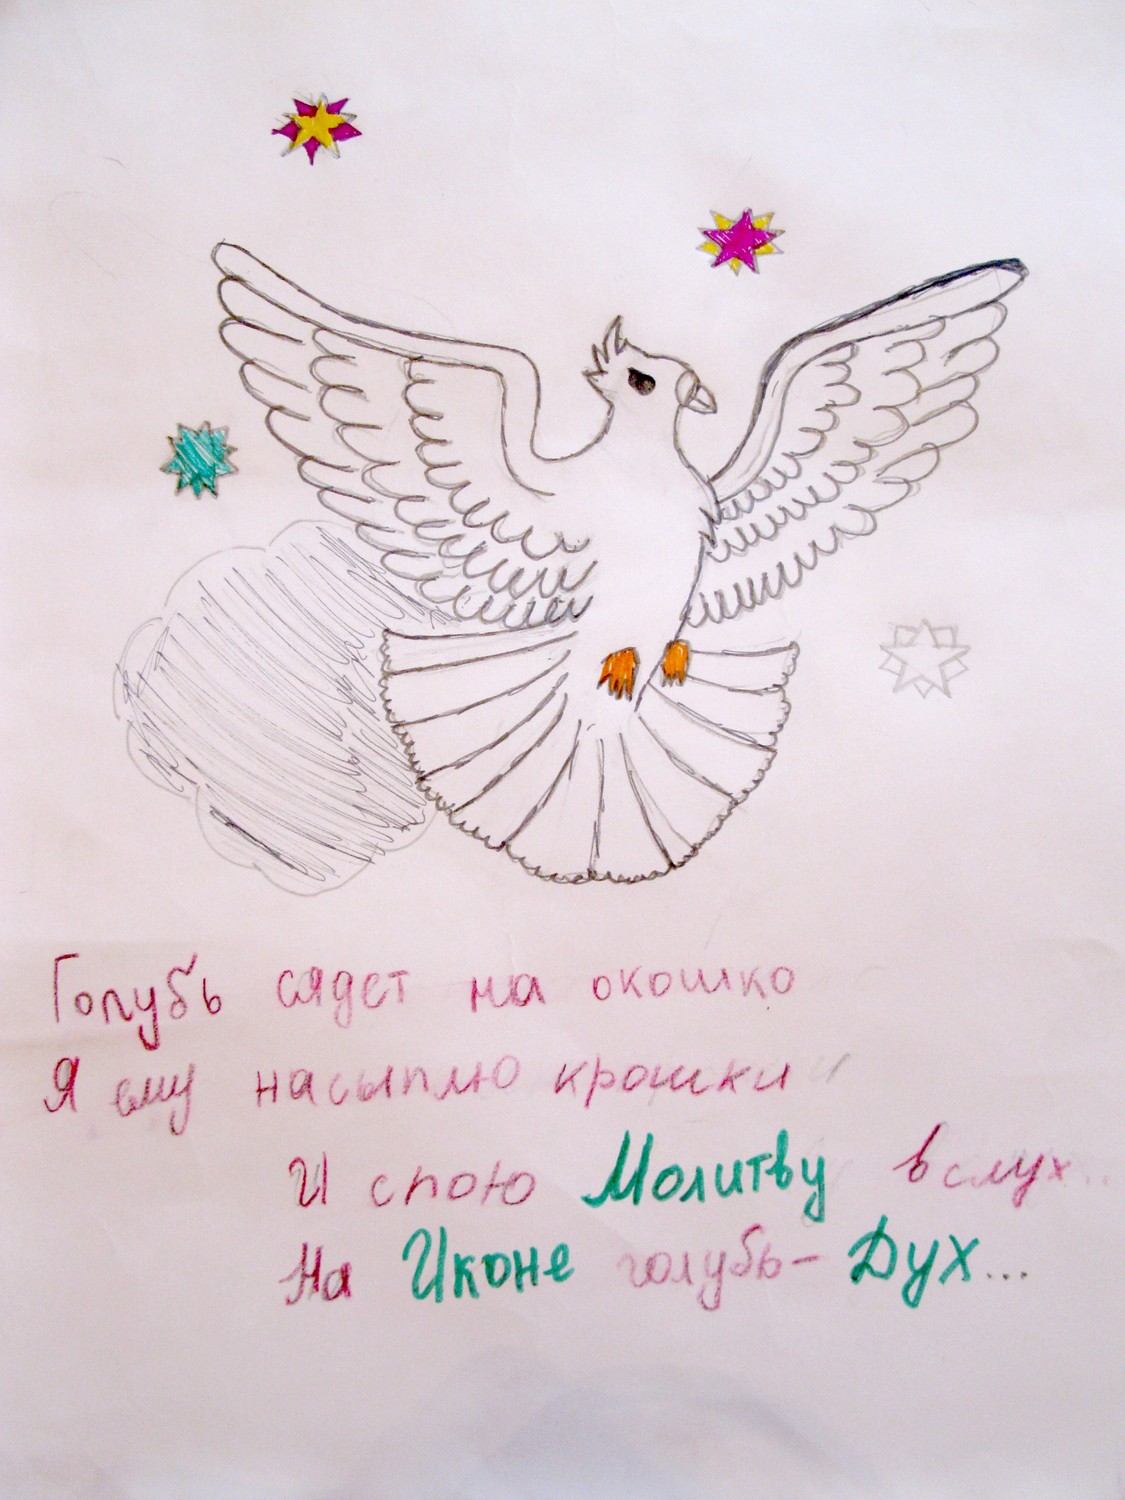 Голубь сядет на окошко
Я ему насыплю крошки
И спою Молитву вслух..
На Иконе голубь- Дух...